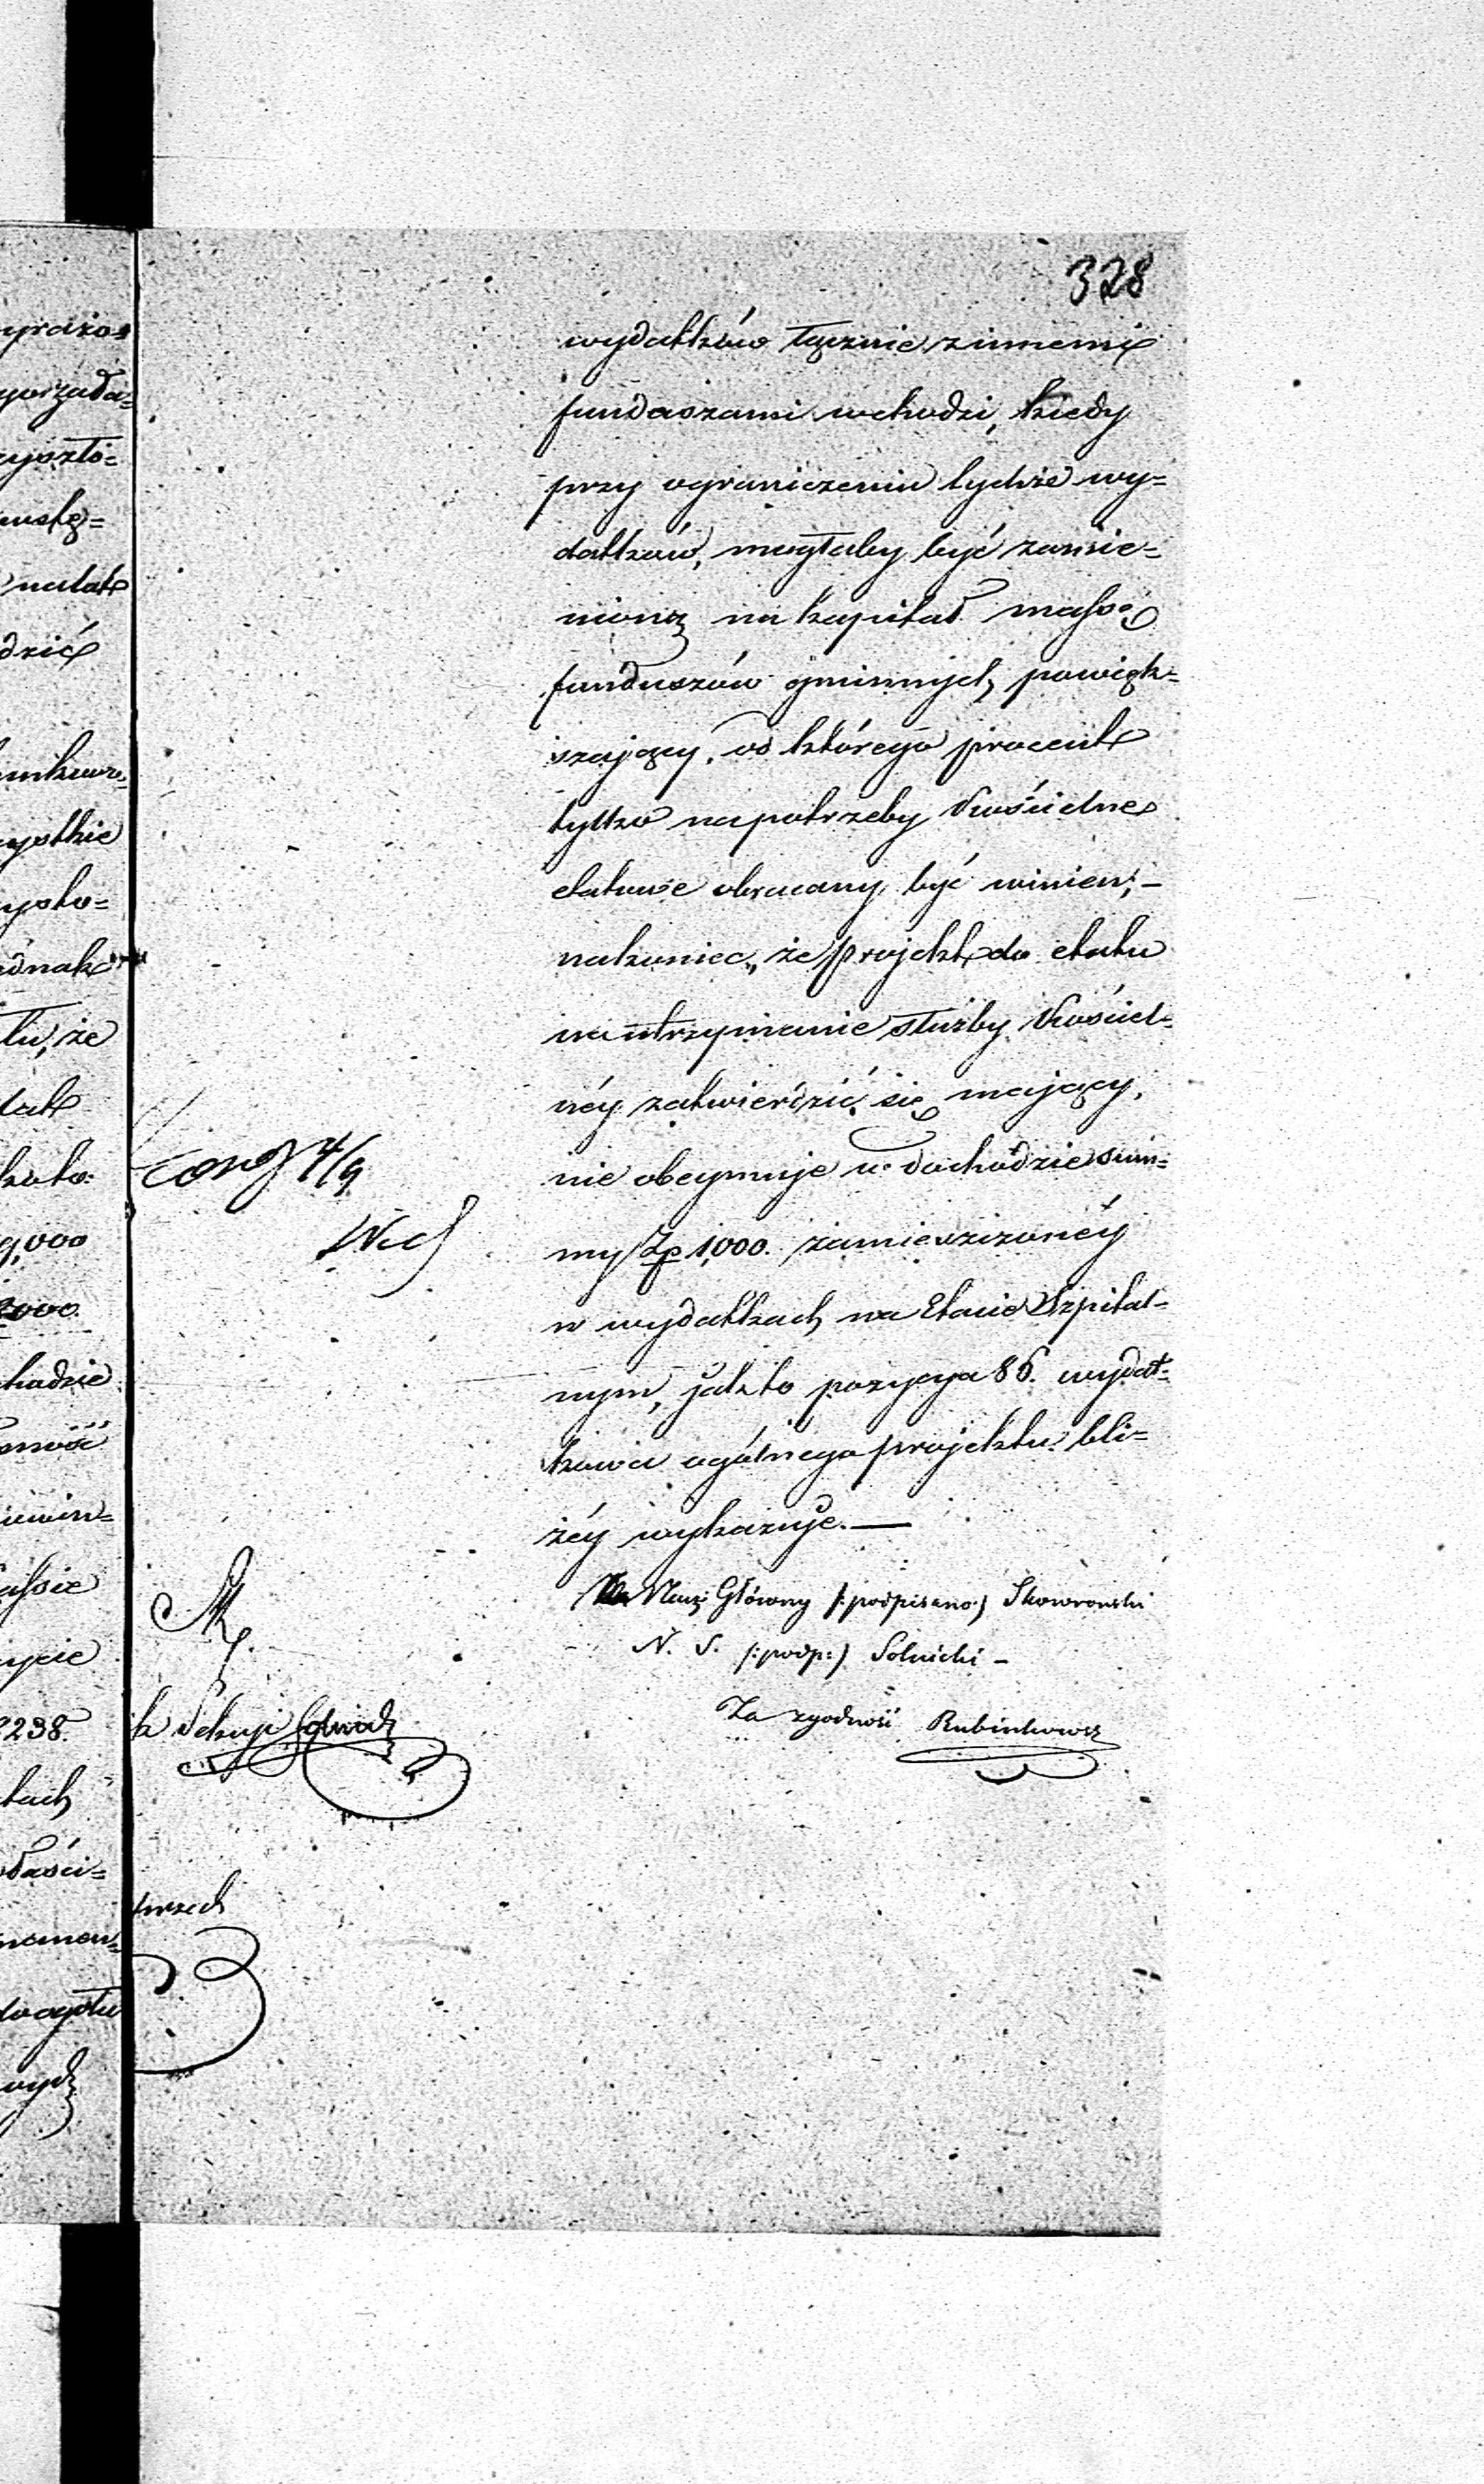 328
wydatków łącznie z innemi
funduszami wchodzi, kiedy
przy ograniczeniu tychże wy=
datków, mogłaby być zamie=
nioną na kapitał massę
funduszów gminnych powięk=
szający, od którego procent
tylko na potrzeby Kościelne
etatowe obracany być winien; —
nakoniec, że projekt do etatu
na utrzymanie służby Kościel=
néy zatwierdzić się mający,
nie obeymuje w dochodzie sum=
my Zp 1,000. zamieszczonéy
w wydatkach na Etacie Szpital=
nym, jak to pozycya 86. wydat=
kowa ogólnego projektu bli=
żéy wykazuje. —
Nacz: Główny /:podpisano:/ Skowroński
N. S. /:podp:/ Solnicki –
Za zgodność Rubinkowicz
4/9
yrażo=
porząda=
yszło=
nalał
dzić
ystkie
ysko=
dnak
tu, że
9,000
2000.
chodzie
assie
ycie
238.
tach
k Sekcyi